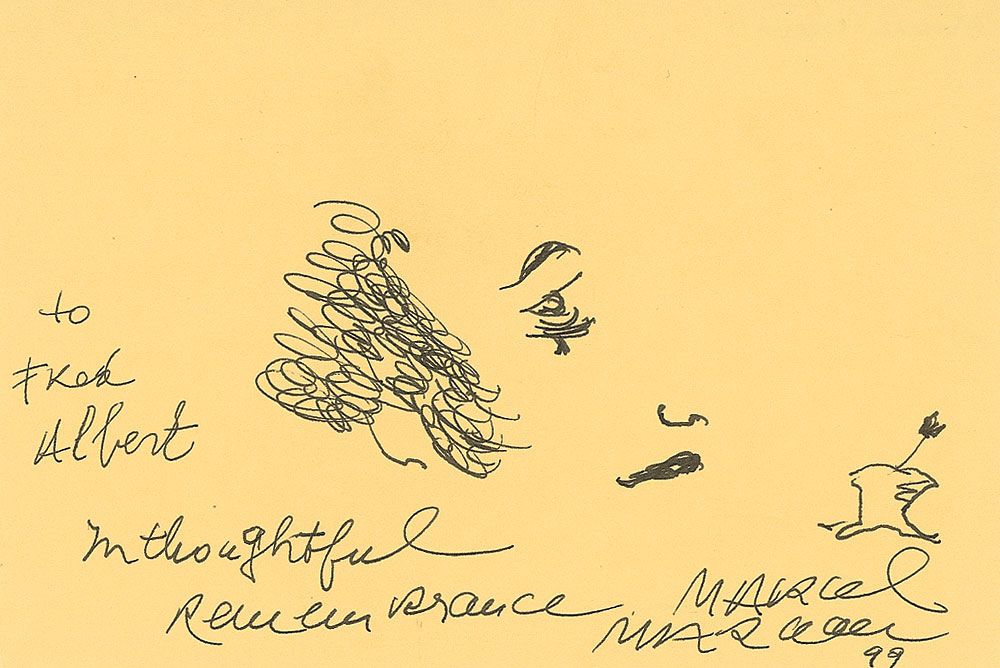 to
Fred
Albert
In thoughtful
Remembrance
MARCEL
MARCEAU
99